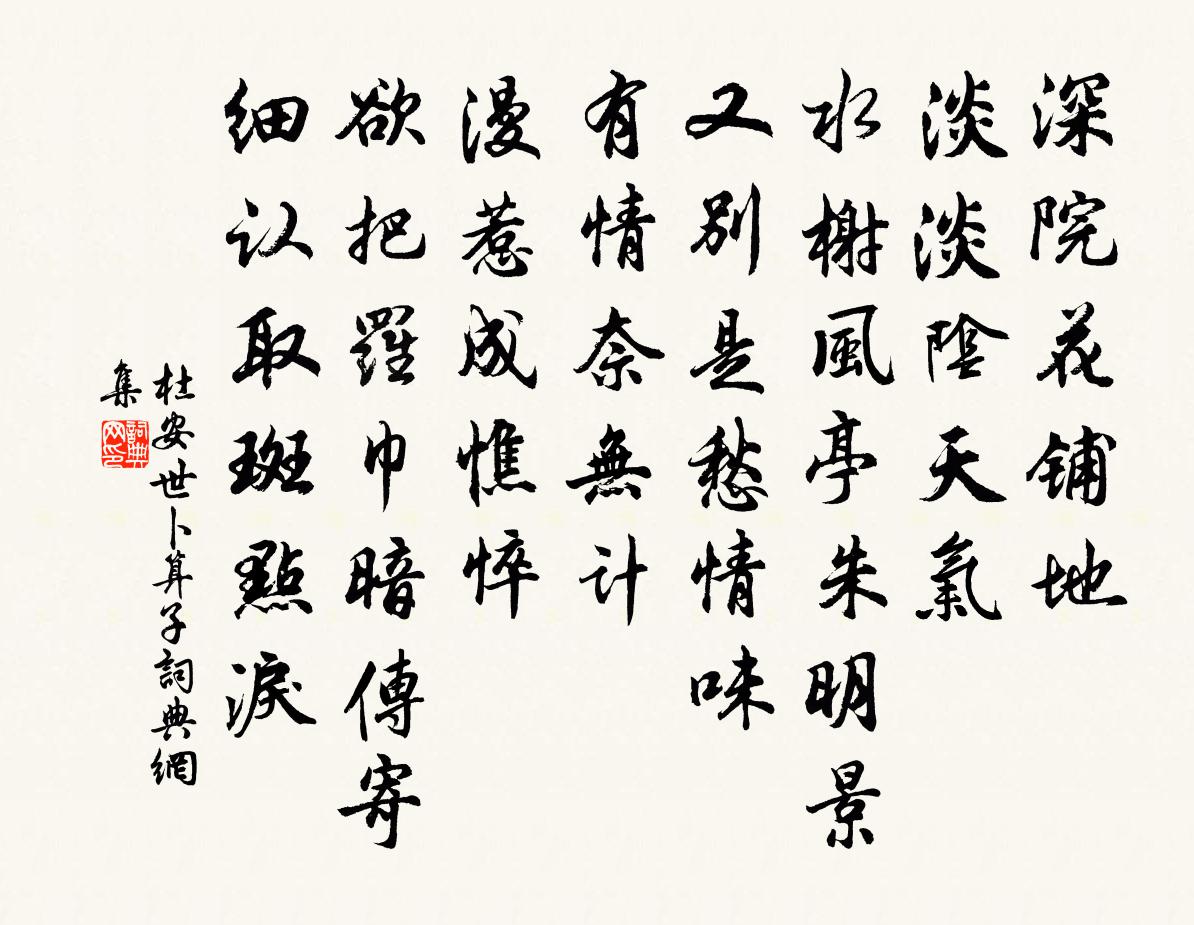 深院花铺地
淡淡陰天氣
水榭風亭朱明景
又别是愁情味
有情奈無计
漫惹成憔悴
欲把羅巾暗傳寄
细认取斑點淚
杜安世卜算子詞典網
集
詞典
网印